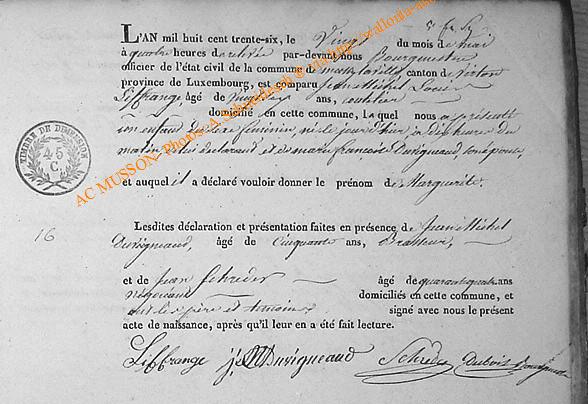 L'AN mil huit cent trente-six, le Vingt du mois de mai
à quatre heures de relevée par-devant nous Bourgmestre
officier de l'état civil de la commune de canton de Virton
province de Luxembourg, est comparu Jean Michel
Siffrange, âgé de ans,
domicilié en cette commune, Laquel nous a présenté
un enfant du sexe féminin, né le jourd'hui, à dix heures du
matin, de lui déclarant et de marie françoise Duvigneaud, son épouse,
et auquel il a déclaré vouloir donner le prénom de Marguerite.
TIMBRE DE DIMENSION
45
C.
16
Lesdites déclaration et présentation faites en présence de Jean Michel
Duvigneaud, âgé de Cinquante ans, Brasseur,
et de Jean Schréder âgé de quarante quatre ans
Négociant domiciliés en cette commune, et
ont les père et témoins signé avec nous le présent
acte de naissance, après qu'il leur en a été fait lecture.
Siffrange J. M. Duvigneaud Schréder Dubois
AC MUSSON- Photos A.